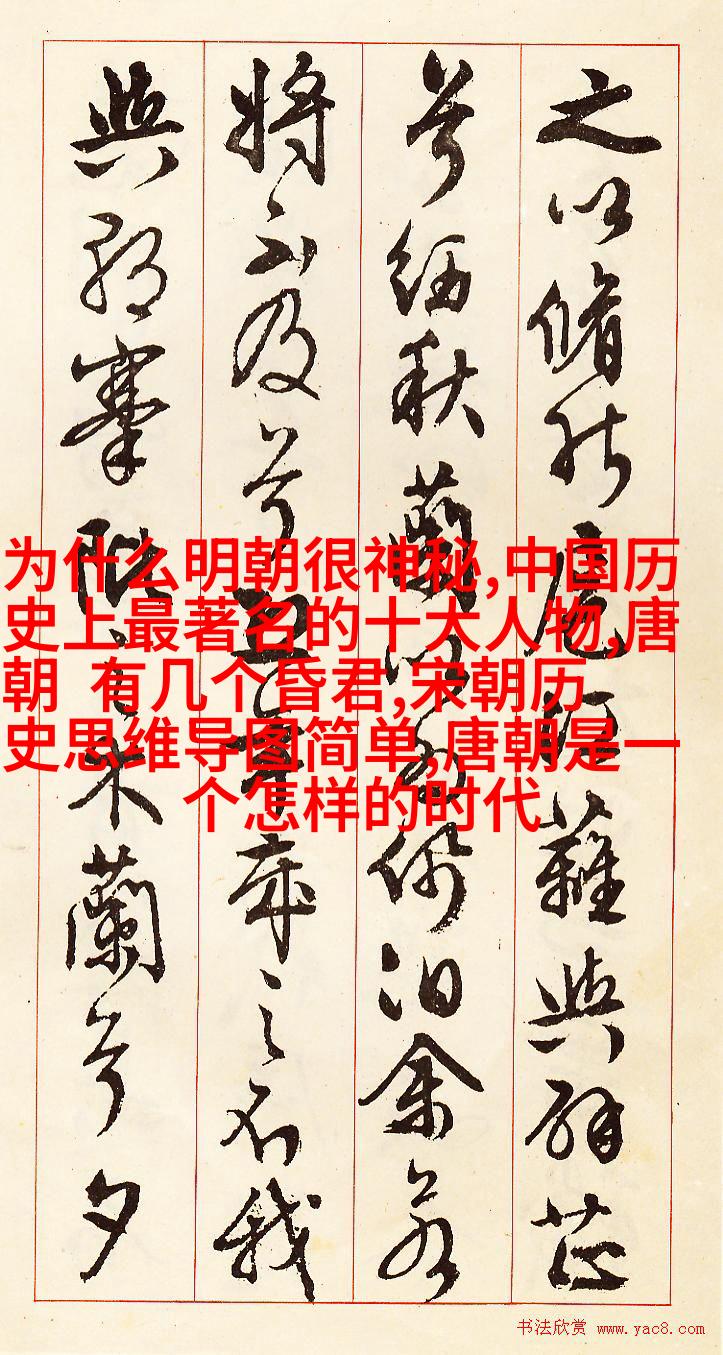 之以脩能扈江蘺與辟芷
兮紉秋蘭以為佩汨余若
将不及兮恐年歲之不我
與朝搴阰之木蘭兮夕
为什么明朝很神秘,中国历
史上最著名的十大人物,唐
朝 有几个昏君,宋朝历
史思维导图简单,唐朝是一
个怎样的时代
书法欣赏 www.yac8.com